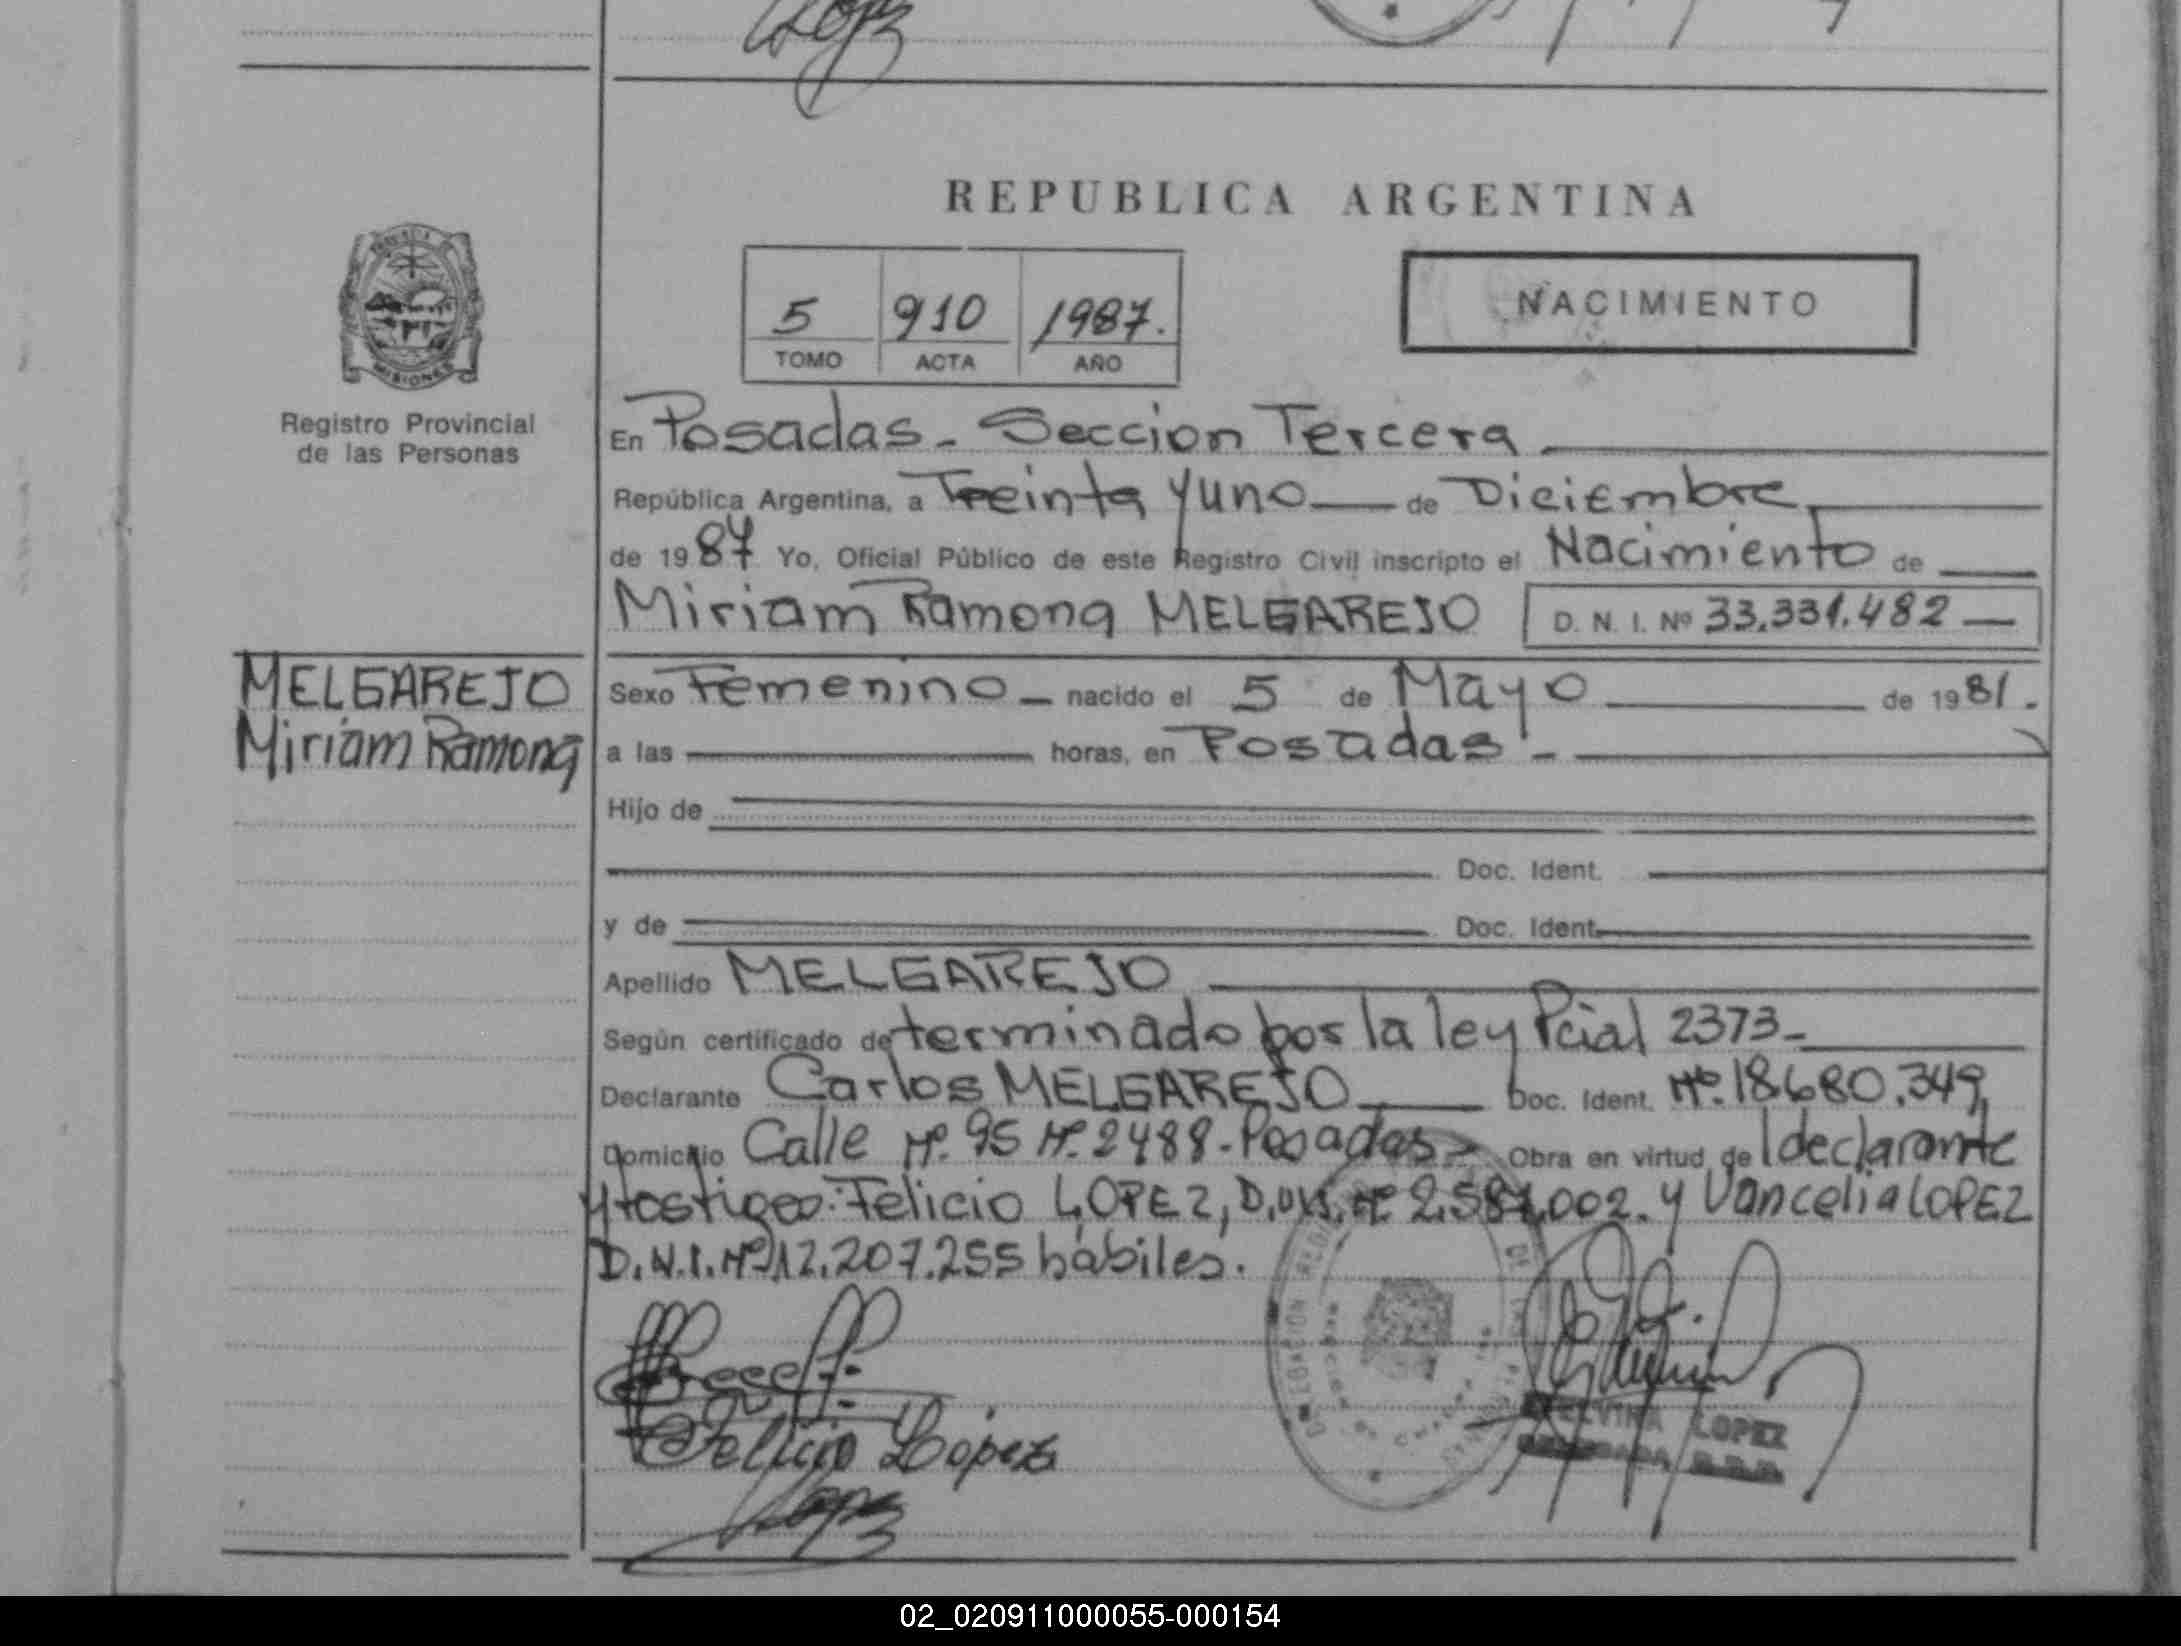 REPUBLICA ARGENTINA
5 910 1987.
TOMO ACTA AÑO
NACIMIENTO
MISIONES
Registro Provincial
de las Personas
En Posadas - Seccion Tercera
República Argentina, a Treinta yuno de Diciembre
de 1987 Yo, Oficial Público de este Registro Civil inscripto el Nacimiento de
Miriam Ramona MELGAREJO D. N. I. Nº 33.331.482
MELGAREJO
Miriam Ramona
Sexo Femenino nacido el 5 de Mayo de 1981.
a las horas, en Posadas -
Hijo de
Doc. Ident.
y de Doc. Ident.
Apellido MELGAREJO
Según certificado determinado por la ley Pcial 2373-
Declarante Carlos MELGAREJO Doc. Ident. Nº.18680.349,
Domicilio Calle Nº. 95 Nº. 2488 - Posadas - Obra en virtud del declarante
y testigos: Felicio LOPEZ, Nº y Vancelia LOPEZ
D.N.I. Nº 12.207.255 hábiles.
Felicio López
Lopez
LOPEZ
02_020911000055-000154